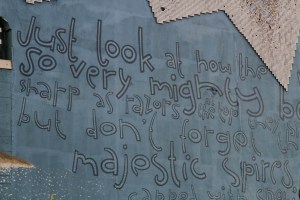 Just look at how the
so very mighty
sharp as razors
but don't forget
majestic spires